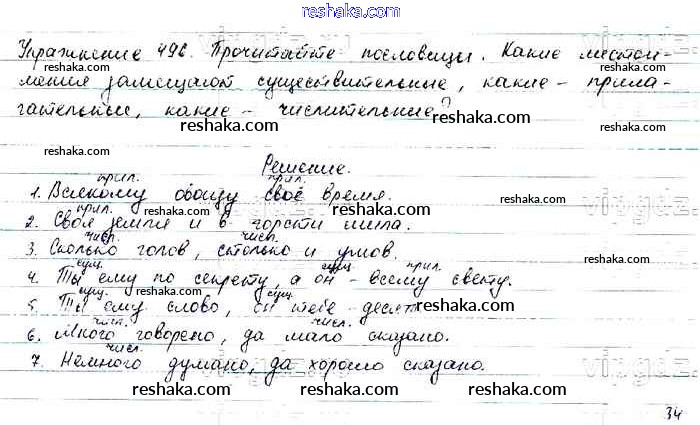 reshaka.com
Упражнение 496. Прочитайте пословицы. Какие местои-
мения замещают существительные, какие - прила-
гательные, какие - числительные?
reshaka.com
reshaka.com
reshaka.com
reshaka.com
Решение.
reshaka.com
прил. прил.
1. Всякому овощу своё время.
прил.
2. Своя земля и в горсти мила.
reshaka.com reshaka.com
числ. числ.
3. Сколько голов, столько и умов.
reshaka.com
сущ. сущ. прил.
4. Ты ему по секрету, а он - всему свету.
reshaka.com
сущ. сущ.
5. Ты ему слово, он тебе десять.
reshaka.com
reshaka.com
числ. числ.
6. Много говорено, да мало сказано.
reshaka.com
числ.
7. Немного думано, да хорошо сказано.
reshaka.com
vipgdz.
reshaka.com reshaka.com
34